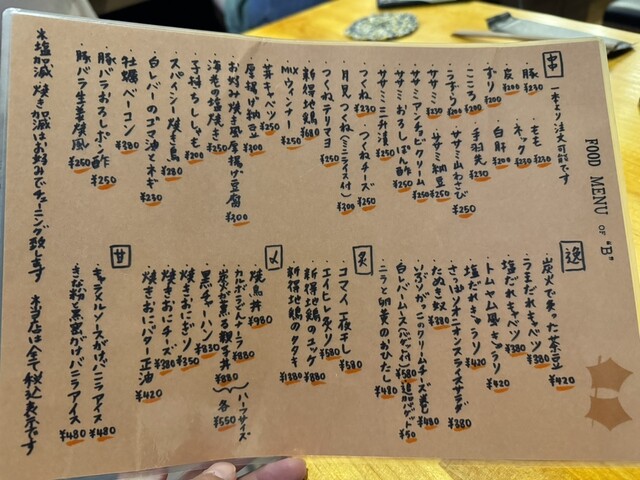 FOOD MENU OF "B"
串 一本より注文可能です
・豚 ¥230 ・もも ¥230
・皮 ¥200 ・ネック ¥230
・ずり ¥200 ・白肝 ¥200
・こころ ¥200 ・手羽先 ¥230
・うずら ¥200 ・ササミ山わさび ¥250
・ササミ ¥230 ・ササミ納豆 ¥250
・ササミアンチョビクリーム ¥250
・ササミおろしぽん酢 ¥250
・ササミ二升漬 ¥250
・つくね ¥230 ・つくねチーズ ¥250
・月見つくね(ミニライス付) ¥300
・つくねテリマヨ ¥250
・新得地鶏 ¥680
・MIXウィンナー ¥250
・茸キャベツ ¥250
・厚揚げ納豆 ¥200
・お好み焼き風厚揚げ豆腐 ¥300
・海老の塩焼き ¥250
・子持ちししゃも ¥200
・スパイシー焼き鳥 ¥280
・白レバーのゴマ油とネギ ¥230
・牡蠣ベーコン ¥380
・豚バラおろしポン酢 ¥250
・豚バラ生姜焼風 ¥250
※塩加減、焼き加減はお好みでチューニング致します
逸
・炭火で炙った茶豆 ¥420
・うま だれキャベツ ¥380
・塩だれキャベツ ¥380
・トムヤム風きゅうり ¥420
・塩だれきゅうり ¥420
・さっぱりオニオンスライスサラダ ¥380
・たぬき奴 ¥380
・いぶりがっこのクリームチーズ巻も ¥480
・白レバームース(バゲット付) ¥580 追加バゲット ¥50
・ニラと卵黄のおひたし ¥480
炙
・コマイ一夜干し ¥580
・エイヒレ炙り ¥580
・新得地鶏のユッケ ¥880
・新得地鶏のタタキ ¥1280
〆
・焼鳥丼 ¥980
・カルボうどんナーラ ¥880
・炭火が香る親子丼 ¥880
・黒チャーハン ¥830
ハーフサイズ 各¥550
・焼きおにぎり ¥350
・焼きおにチーズ ¥380
・焼きおにバター正油 ¥420
甘
・キャラメルソースがけバニラアイス ¥480
・きな粉と黒蜜がけバニラアイス ¥480
※当店は全て税込表示です